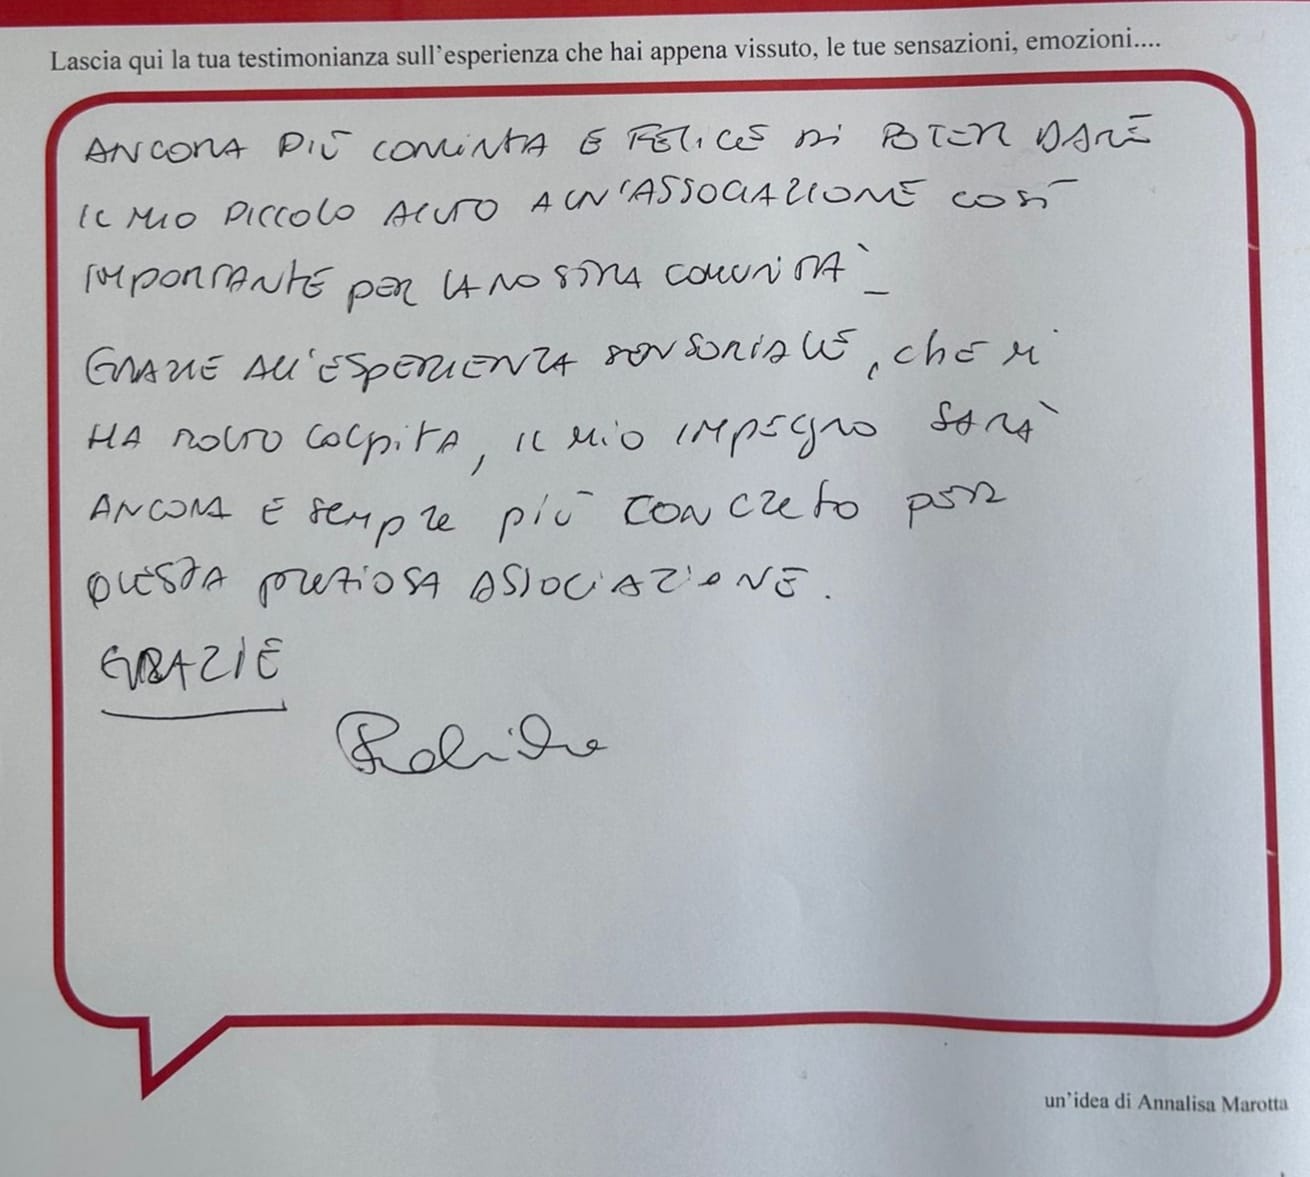 Lascia qui la tua testimonianza sull'esperienza che hai appena vissuto, le tue sensazioni, emozioni....
ANCORA PIÙ CONVINTA E FELICE DI POTER DARE
IL MIO PICCOLO AIUTO A UN'ASSOCIAZIONE COSÌ
IMPORTANTE PER LA NOSTRA COMUNITÀ_
GRAZIE ALL'ESPERIENZA SENSORIALE, CHE MI
HA MOLTO COLPITA, IL MIO IMPEGNO SARÀ
ANCORA E SEMPRE PIÙ CONCRETO PER
QUESTA PREZIOSA ASSOCIAZIONE.
GRAZIE
un'idea di Annalisa Marotta